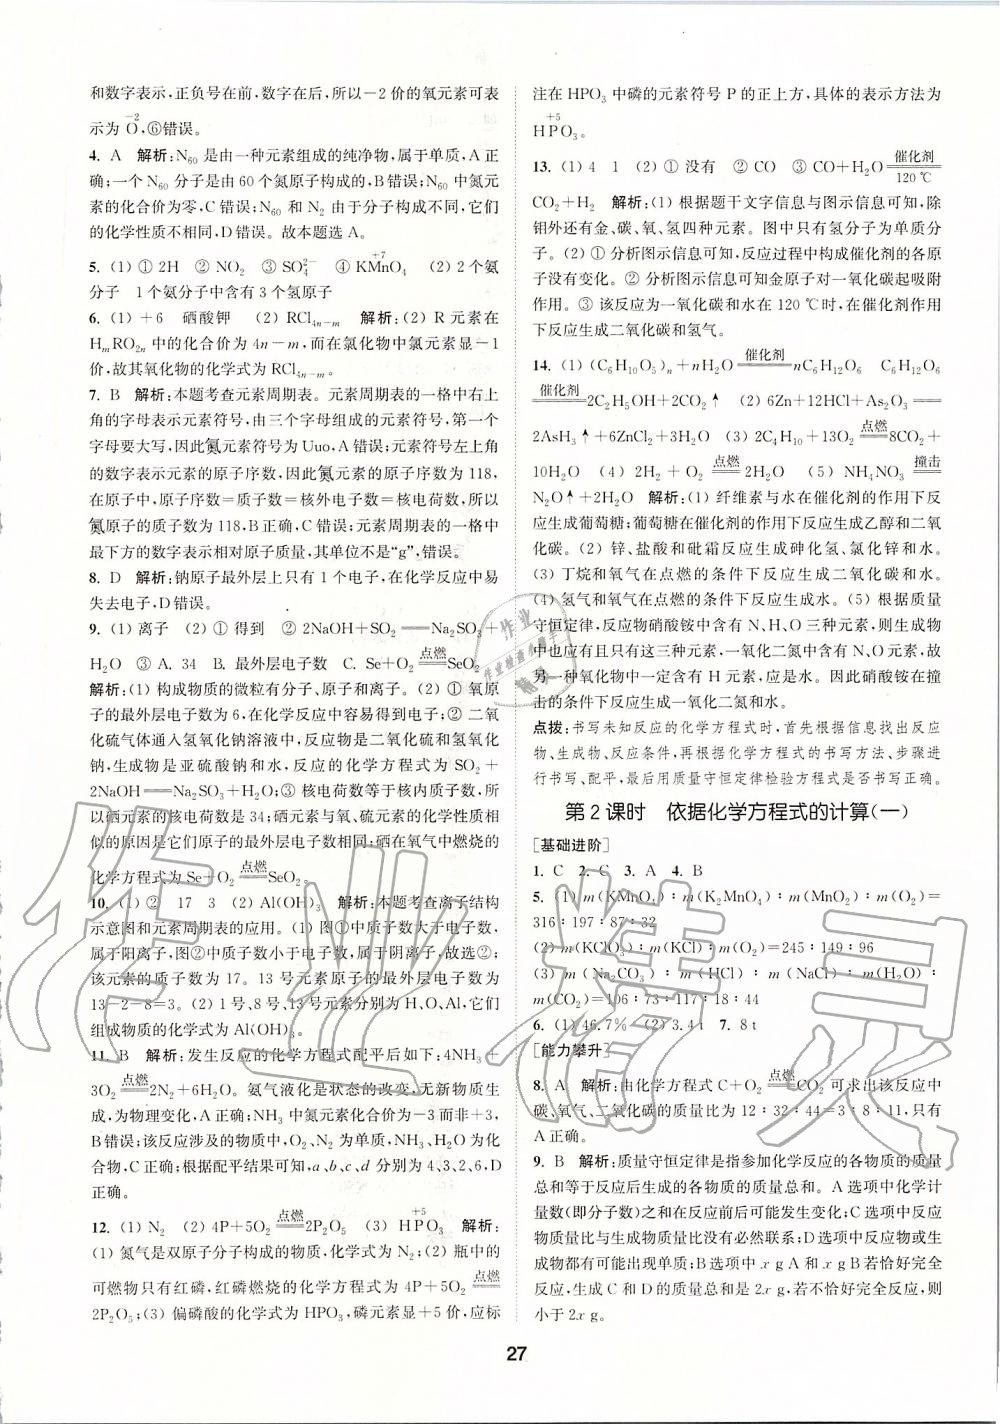 和数字表示,正负号在前,数字在后,所以-2价的氧元素可表
示为O(-2),⑥错误。
4. A 解析:N₆₀是由一种元素组成的纯净物,属于单质,A正
确;一个N₆₀分子是由60个氮原子构成的,B错误;N₆₀中氮元
素的化合价为零,C错误;N₆₀和N₂由于分子构成不同,它们
的化学性质不相同,D错误。故本题选A。
5. (1) ① 2H ② NO₂ ③ SO₄²⁻ ④ KMn(+7)O₄ (2) 2个氨
分子 1个氨分子中含有3个氢原子
6. (1) +6 硒酸钾 (2) RCl₄ₙ₋ₘ 解析:(2) R元素在
HₘRO₂ₙ中的化合价为4n-m,而在氯化物中氯元素显-1
价,故其氧化物的化学式为RCl₄ₙ₋ₘ。
7. B 解析:本题考查元素周期表。元素周期表的一格中右上
角的字母表示元素符号,由三个字母组成的元素符号,第一个
字母要大写,因此氮元素符号为Uuo,A错误;元素符号左上角
的数字表示元素的原子序数,因此氮元素的原子序数为118,
在原子中,原子序数=质子数=核外电子数=核电荷数,所以
氮原子的质子数为118,B正确,C错误;元素周期表的一格中
最下方的数字表示相对原子质量,其单位不是“g”,错误。
8. D 解析:钠原子最外层上只有1个电子,在化学反应中易
失去电子,D错误。
9. (1) 离子 (2) ① 得到 ② 2NaOH+SO₂══Na₂SO₃+
H₂O ③ A. 34 B. 最外层电子数 C. Se+O₂ ══(点燃) SeO₂
解析:(1) 构成物质的微粒有分子、原子和离子。(2) ① 氧原
子的最外层电子数为6,在化学反应中容易得到电子;② 二氧
化硫气体通入氢氧化钠溶液中,反应物是二氧化硫和氢氧化
钠,生成物是亚硫酸钠和水,反应的化学方程式为SO₂+
2NaOH══Na₂SO₃+H₂O;③ 核电荷数等于核内质子数,所
以硒元素的核电荷数是34;硒元素与氧、硫元素的化学性质相
似的原因是它们原子的最外层电子数相同;硒在氧气中燃烧的
化学方程式为Se+O₂ ══(点燃) SeO₂。
10. (1) ② 17 3 (2) Al(OH)₃ 解析:本题考查离子结构
示意图和元素周期表的应用。(1) 图①中质子数大于电子数,
属于阳离子,图②中质子数小于电子数,属于阴离子,故选②;
该元素的质子数为17。13号元素原子的最外层电子数为
13-2-8=3。(2) 1号、8号、13号元素分别为H、O、Al,它们
组成物质的化学式为Al(OH)₃。
11. B 解析:发生反应的化学方程式配平后如下:4NH₃+
3O₂ ══(点燃) 2N₂+6H₂O。氨气液化是状态的改变,无新物质生
成,为物理变化,A正确;NH₃中氮元素化合价为-3而非+3,
B错误;该反应涉及的物质中,O₂、N₂为单质,NH₃、H₂O为化
合物,C正确;根据配平结果可知,a、b、c、d分别为4、3、2、6,D
正确。
12. (1) N₂ (2) 4P+5O₂ ══(点燃) 2P₂O₅ (3) HP(+5)O₃ 解析:
(1) 氮气是双原子分子构成的物质,化学式为N₂;(2) 瓶中的
可燃物只有红磷,红磷燃烧的化学方程式为4P+5O₂ ══(点燃)
2P₂O₅;(3) 偏磷酸的化学式为HPO₃,磷元素显+5价,应标
注在HPO₃中磷的元素符号P的正上方,具体的表示方法为
HP(+5)O₃。
13. (1) 4 1 (2) ① 没有 ② CO ③ CO+H₂O ══(催化剂,120 ℃)
CO₂+H₂ 解析:(1) 根据题干文字信息与图示信息可知,除
钼外还有金、碳、氧、氢四种元素。图中只有氢分子为单质分
子。(2) ① 分析图示信息可知,反应过程中构成催化剂的各原
子没有变化。② 分析图示信息可知金原子对一氧化碳起吸附
作用。③ 该反应为一氧化碳和水在120 ℃时,在催化剂作用
下反应生成二氧化碳和氢气。
14. (1) (C₆H₁₀O₅)ₙ+nH₂O ══(催化剂) nC₆H₁₂O₆ C₆H₁₂O₆
══(催化剂) 2C₂H₅OH+2CO₂↑ (2) 6Zn+12HCl+As₂O₃══
2AsH₃↑+6ZnCl₂+3H₂O (3) 2C₄H₁₀+13O₂ ══(点燃) 8CO₂+
10H₂O (4) 2H₂+O₂ ══(点燃) 2H₂O (5) NH₄NO₃ ══(撞击)
N₂O↑+2H₂O 解析:(1) 纤维素与水在催化剂的作用下反
应生成葡萄糖;葡萄糖在催化剂的作用下反应生成乙醇和二氧
化碳。(2) 锌、盐酸和砒霜反应生成砷化氢、氯化锌和水。
(3) 丁烷和氧气在点燃的条件下反应生成二氧化碳和水。
(4) 氢气和氧气在点燃的条件下反应生成水。(5) 根据质量
守恒定律,反应物硝酸铵中含有N、H、O三种元素,则生成物
中也应有这三种元素,一氧化二氮中含有N、O两种元素,则
另一种氧化物中一定含有H元素,应是水。因此硝酸铵在撞
击的条件下反应生成一氧化二氮和水。
点拨:书写未知反应的化学方程式时,首先根据信息找出反应
物、生成物、反应条件,再根据化学方程式的书写方法、步骤进
行书写、配平,最后用质量守恒定律检验方程式是否书写正确。
第2课时 依据化学方程式的计算(一)
[基础进阶]
1. C 2. C 3. A 4. B
5. (1) m(KMnO₄)∶m(K₂MnO₄)∶m(MnO₂)∶m(O₂)=
316∶197∶87∶32
(2) m(KClO₃)∶m(KCl)∶m(O₂)=245∶149∶96
(3) m(Na₂CO₃)∶m(HCl)∶m(NaCl)∶m(H₂O)∶
m(CO₂)=106∶73∶117∶18∶44
6. (1) 46.7% (2) 3.4 t 7. 8 t
[能力攀升]
8. A 解析:由化学方程式C+O₂ ══(点燃) CO₂可求出该反应中
碳、氧气、二氧化碳的质量比为12∶32∶44=3∶8∶11,只有
A正确。
9. B 解析:质量守恒定律是指参加化学反应的各物质的质量
总和等于反应后生成的各物质的质量总和。A选项中化学计
量数(即分子数)之和在反应前后可能发生变化;C选项中反应
物质量与生成物质量比没有必然联系;D选项中反应物或生
成物都有可能出现单质;B选项中x g A和x g B若恰好完全
反应,生成C和D的质量总和是2x g,若不恰好完全反应,则
小于2x g。
27
作业精灵
作业
作业检查小帮手
精灵